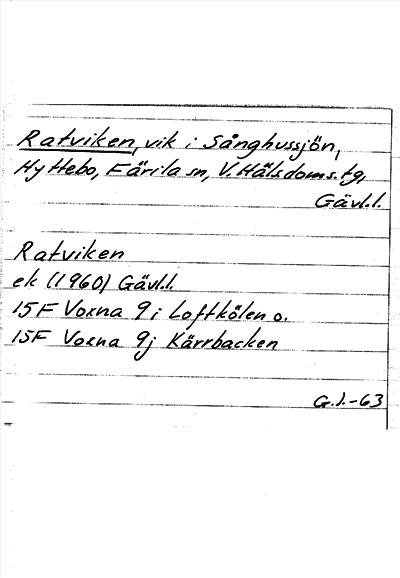 Ratviken, vik i Sånghussjön,
Hyttebo, Färila sn, V. Häls doms. tg,
Gävl.l.
Ratviken
ek (1960) Gävl.l.
15F Voxna 9i Loftkölen o.
15F Voxna 9j Kärrbacken
G.l.-63